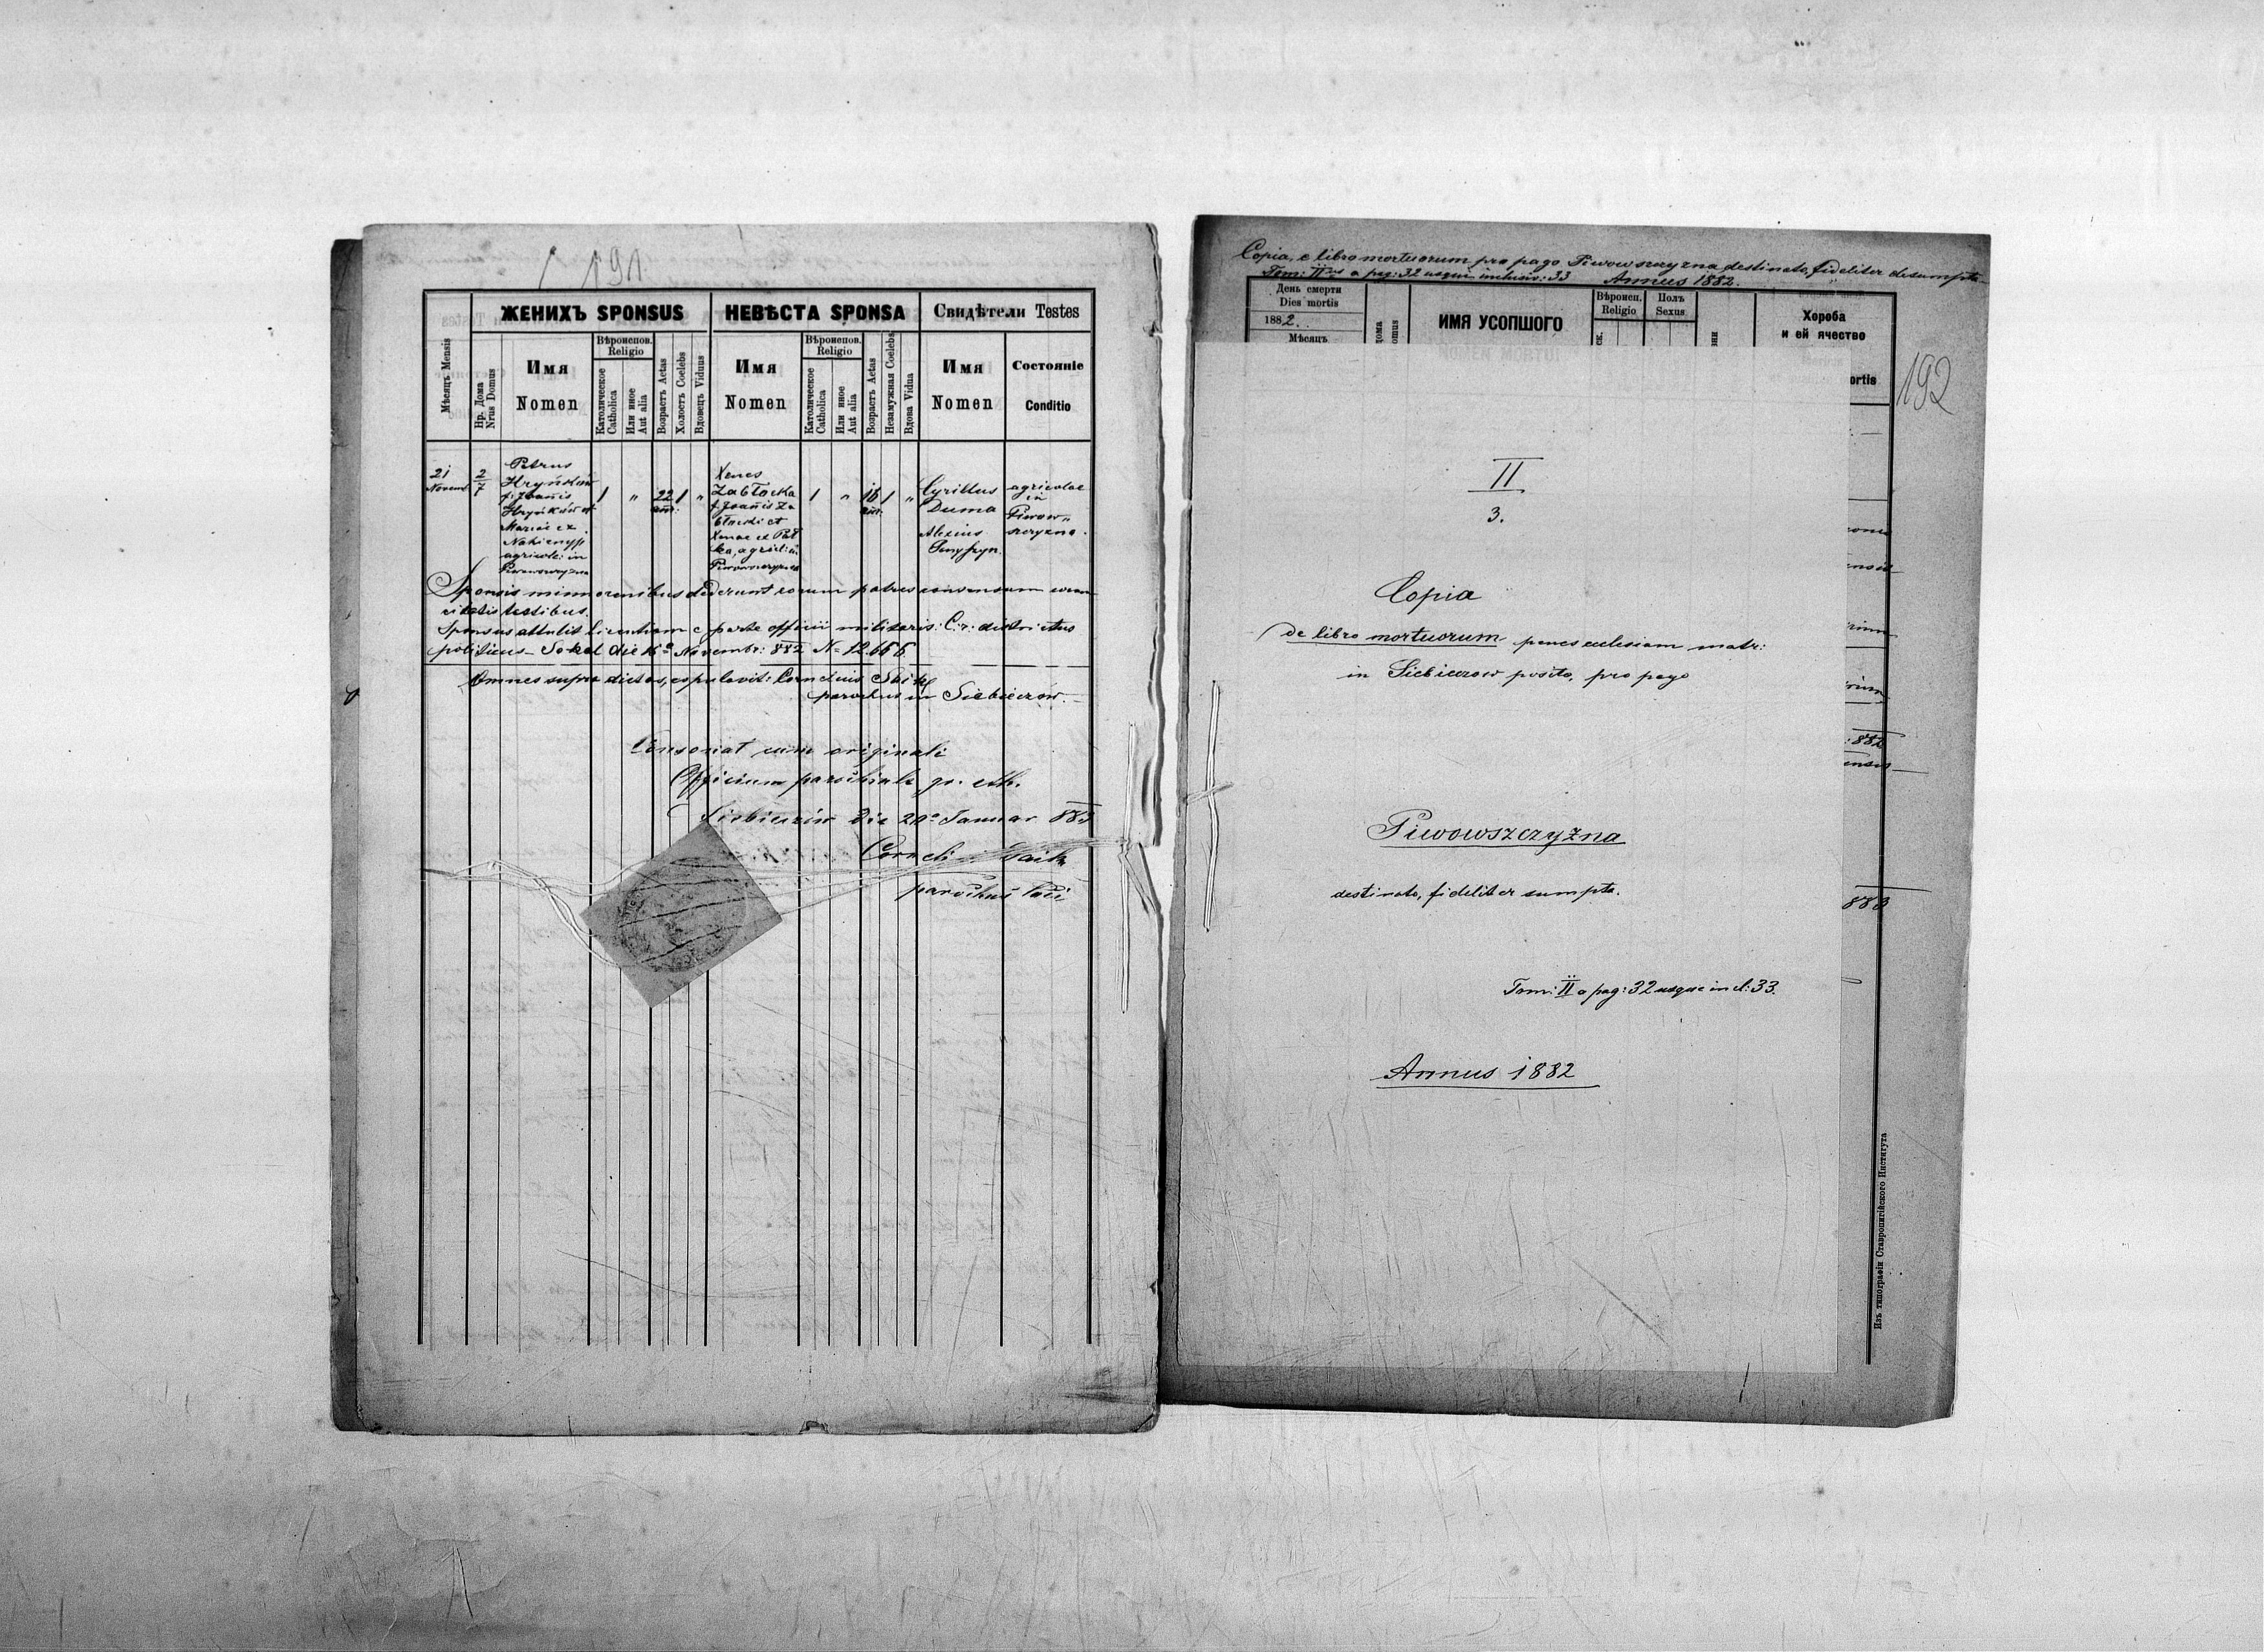 191
ЖЕНИХЪ SPONSUS
НЕВѢСТА SPONSA
Свидѣтели Testes
Мѣсяцъ Mensis
Нр. Дома
Nrus Domus
Имя
Nomen
Вѣроиспов.
Religio
Католическое
Catholica
Или иное
Aut alia
Возрастъ Aetas
Холостъ Coelebs
Вдовецъ Viduus
Имя
Nomen
Вѣроиспов.
Religio
Католическое
Catholica
Или иное
Aut alia
Возрастъ Aetas
Незамужная Coelebs
Вдова Vidua
Имя
Nomen
Состояніе
Conditio
21
Novem
2
7
Petrus
Hryńków
f: Joanis
Hryńków et
Mariae ex
agricole: in
Piwowszczyzna
1
"
22
ann.
1
"
Xenes
Zabłocka
f. Joanis Za
błocki et
Xenae ex
agricol: in
Piwowszczyzna
1
"
18
ann.
1
"
Cyrillus
Duma
Alexius
agricolae
in
Piwow„
szczyzna.
Sponsis minorenibus dederunt eorum patres consensum coram
citatis testibus.
Sponsus attulit licentiam e parte officii militaris: C. r. districtus
politicus Sokal die 16a Novembr: 882 N= 12666
Omnes supra dictos, copulavit: Cornelius
parochus in Siebieczow.
Consonat cum originali
Officium parochiale gr. cth.
Siebieczów die 20a Januar 883
parochus loci
Copia, e libro mortuorum pro pago Piwowszczyzna destinato, fideliter desumpta
Tom: IIus a pag: 32 usque inclusiv: 33 Annus 1882.
День смерти
Dies mortis
1882.
Мѣсяцъ
дома
omus
ИМЯ УСОПШОГО
Вѣроисп.
Religio
Полъ
Sexus
Хороба
и ей ячество
ortis
192
II
3.
Copia
de libro mortuorum penes ecclesiam matr:
in Siebieczow posito, pro pago
Piwowszczyzna
destinato, fideliter sumpta.
Tom: II a pag: 32 usque incl: 33.
Annus 1882
882
883
Изъ типографіи Ставропигійского Института